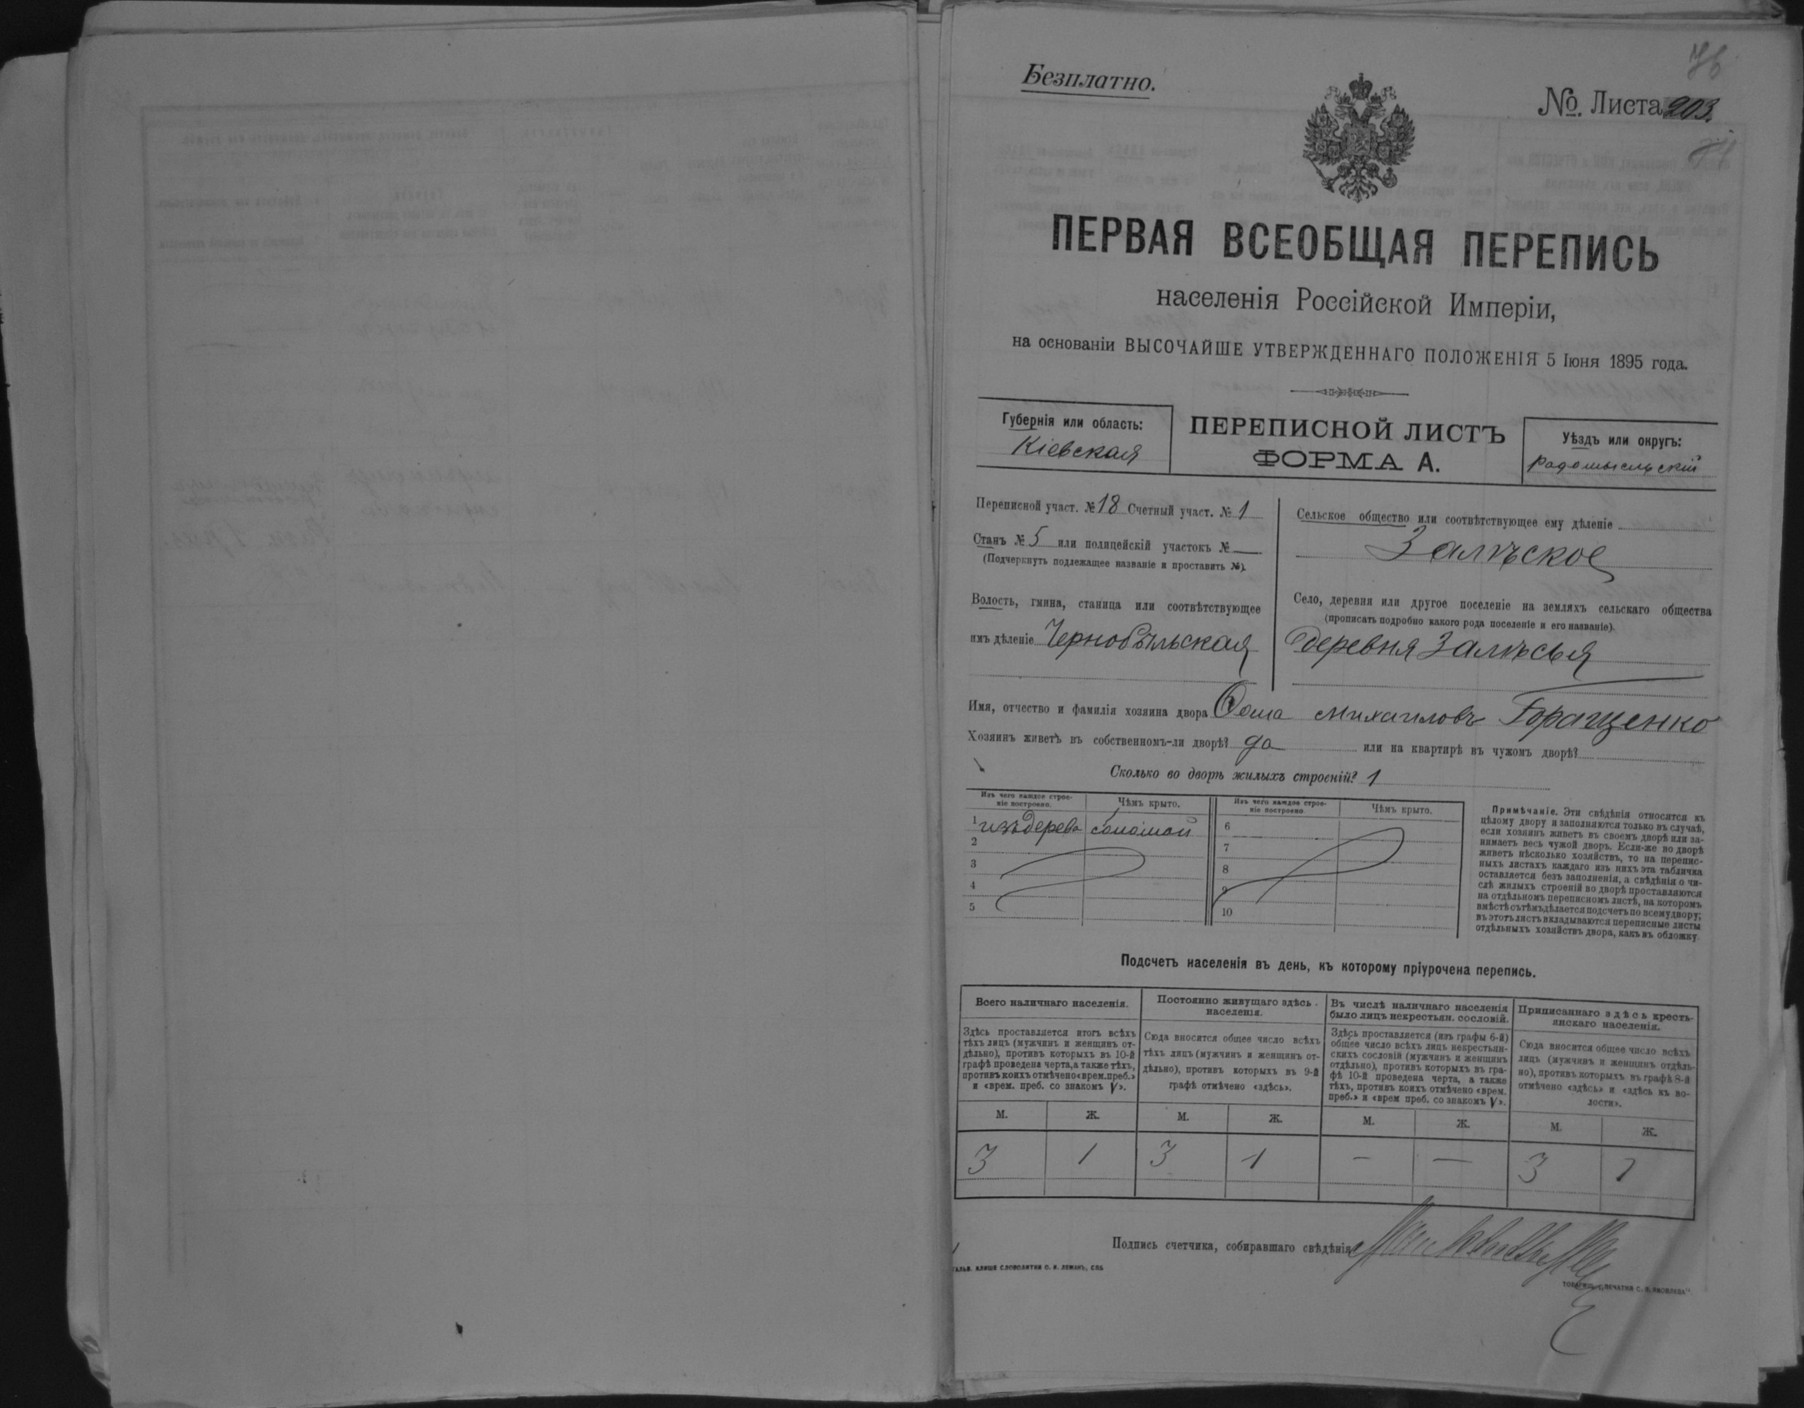 76
Безплатно.
№. Листа 203.
ПЕРВАЯ ВСЕОБЩАЯ ПЕРЕПИСЬ
населенія Россійской Имперіи,
на основаніи ВЫСОЧАЙШЕ УТВЕРЖДЕННАГО ПОЛОЖЕНІЯ 5 Іюня 1895 года.
Губернія или область:
Кіевская
ПЕРЕПИСНОЙ ЛИСТЪ
ФОРМА А.
Уѣздъ или округъ:
Радомысльскій
Переписной участ. № 18 Счетный участ. № 1
Станъ № 5 или полицейскій участокъ №
(Подчеркнуть подлежащее названіе и проставить №).
Волость, гмина, станица или соотвѣтствующее
имъ дѣленіе Чернобыльская
Сельское общество или соотвѣтствующее ему дѣленіе
Залѣское
Село, деревня или другое поселеніе на земляхъ сельскаго общества
(прописать подробно какого рода поселеніе и его названіе).
деревня Залѣсья
Имя, отчество и фамилія хозяина двора Ѳома Михаиловъ Горащенко
Хозяинъ живетъ въ собственномъ-ли дворѣ? да или на квартирѣ въ чужомъ дворѣ?
Сколько во дворѣ жилыхъ строеній? 1
Изъ чего каждое строе-
ніе построено.
Чѣмъ крыто.
Изъ чего каждое строе-
ніе построено.
Чѣмъ крыто.
1 изъ дерева соломой
2
3
4
5
6
7
8
9
10
Примѣчаніе. Эти свѣдѣнія относятся къ
цѣлому двору и заполняются только въ случаѣ,
если хозяинъ живетъ въ своемъ дворѣ или за-
нимаетъ весь чужой дворъ. Если-же во дворѣ
живетъ нѣсколько хозяйствъ, то на перепис-
ныхъ листахъ каждаго изъ нихъ эта табличка
оставляется безъ заполненія, а свѣдѣнія о чи-
слѣ жилыхъ строеній во дворѣ проставляются
на отдѣльномъ переписномъ листѣ, на которомъ
вмѣстѣ съ тѣмъ дѣлается подсчетъ по всему двору;
въ этотъ листъ вкладываются переписные листы
отдѣльныхъ хозяйствъ двора, какъ въ обложку.
Подсчетъ населенія въ день, къ которому пріурочена перепись.
Всего наличнаго населенія.
Здѣсь проставляется итогъ всѣхъ
тѣхъ лицъ (мужчинъ и женщинъ от-
дѣльно), противъ которыхъ въ 10-й
графѣ проведена черта, а также тѣхъ,
противъ коихъ отмѣчено «врем. преб.»
и «врем. преб. со знакомъ V».
Постоянно живущаго здѣсь
населенія.
Сюда вносится общее число всѣхъ
тѣхъ лицъ (мужчинъ и женщинъ от-
дѣльно), противъ которыхъ въ 9-й
графѣ отмѣчено «здѣсь».
Въ числѣ наличнаго населенія
было лицъ некрестьян. сословій.
Здѣсь проставляется (изъ графы 6-й)
общее число всѣхъ лицъ некрестьян-
скихъ сословій (мужчинъ и женщинъ
отдѣльно), противъ которыхъ въ гра-
фѣ 10-й проведена черта, а также
тѣхъ, противъ коихъ отмѣчено «врем.
преб.» и «врем преб. со знакомъ V».
Приписаннаго здѣсь кресть-
янскаго населенія.
Сюда вносится общее число всѣхъ
лицъ (мужчинъ и женщинъ отдѣль-
но), противъ которыхъ въ графѣ 8-й
отмѣчено «здѣсь» и «здѣсь къ во-
лости».
М. Ж. М. Ж. М. Ж. М. Ж.
3 1 3 1 — — 3 1
Подпись счетчика, собиравшаго свѣдѣнія
КЛИШЕ СЛОВОЛИТНИ О. И. ЛЕМАНЪ, СПБ.